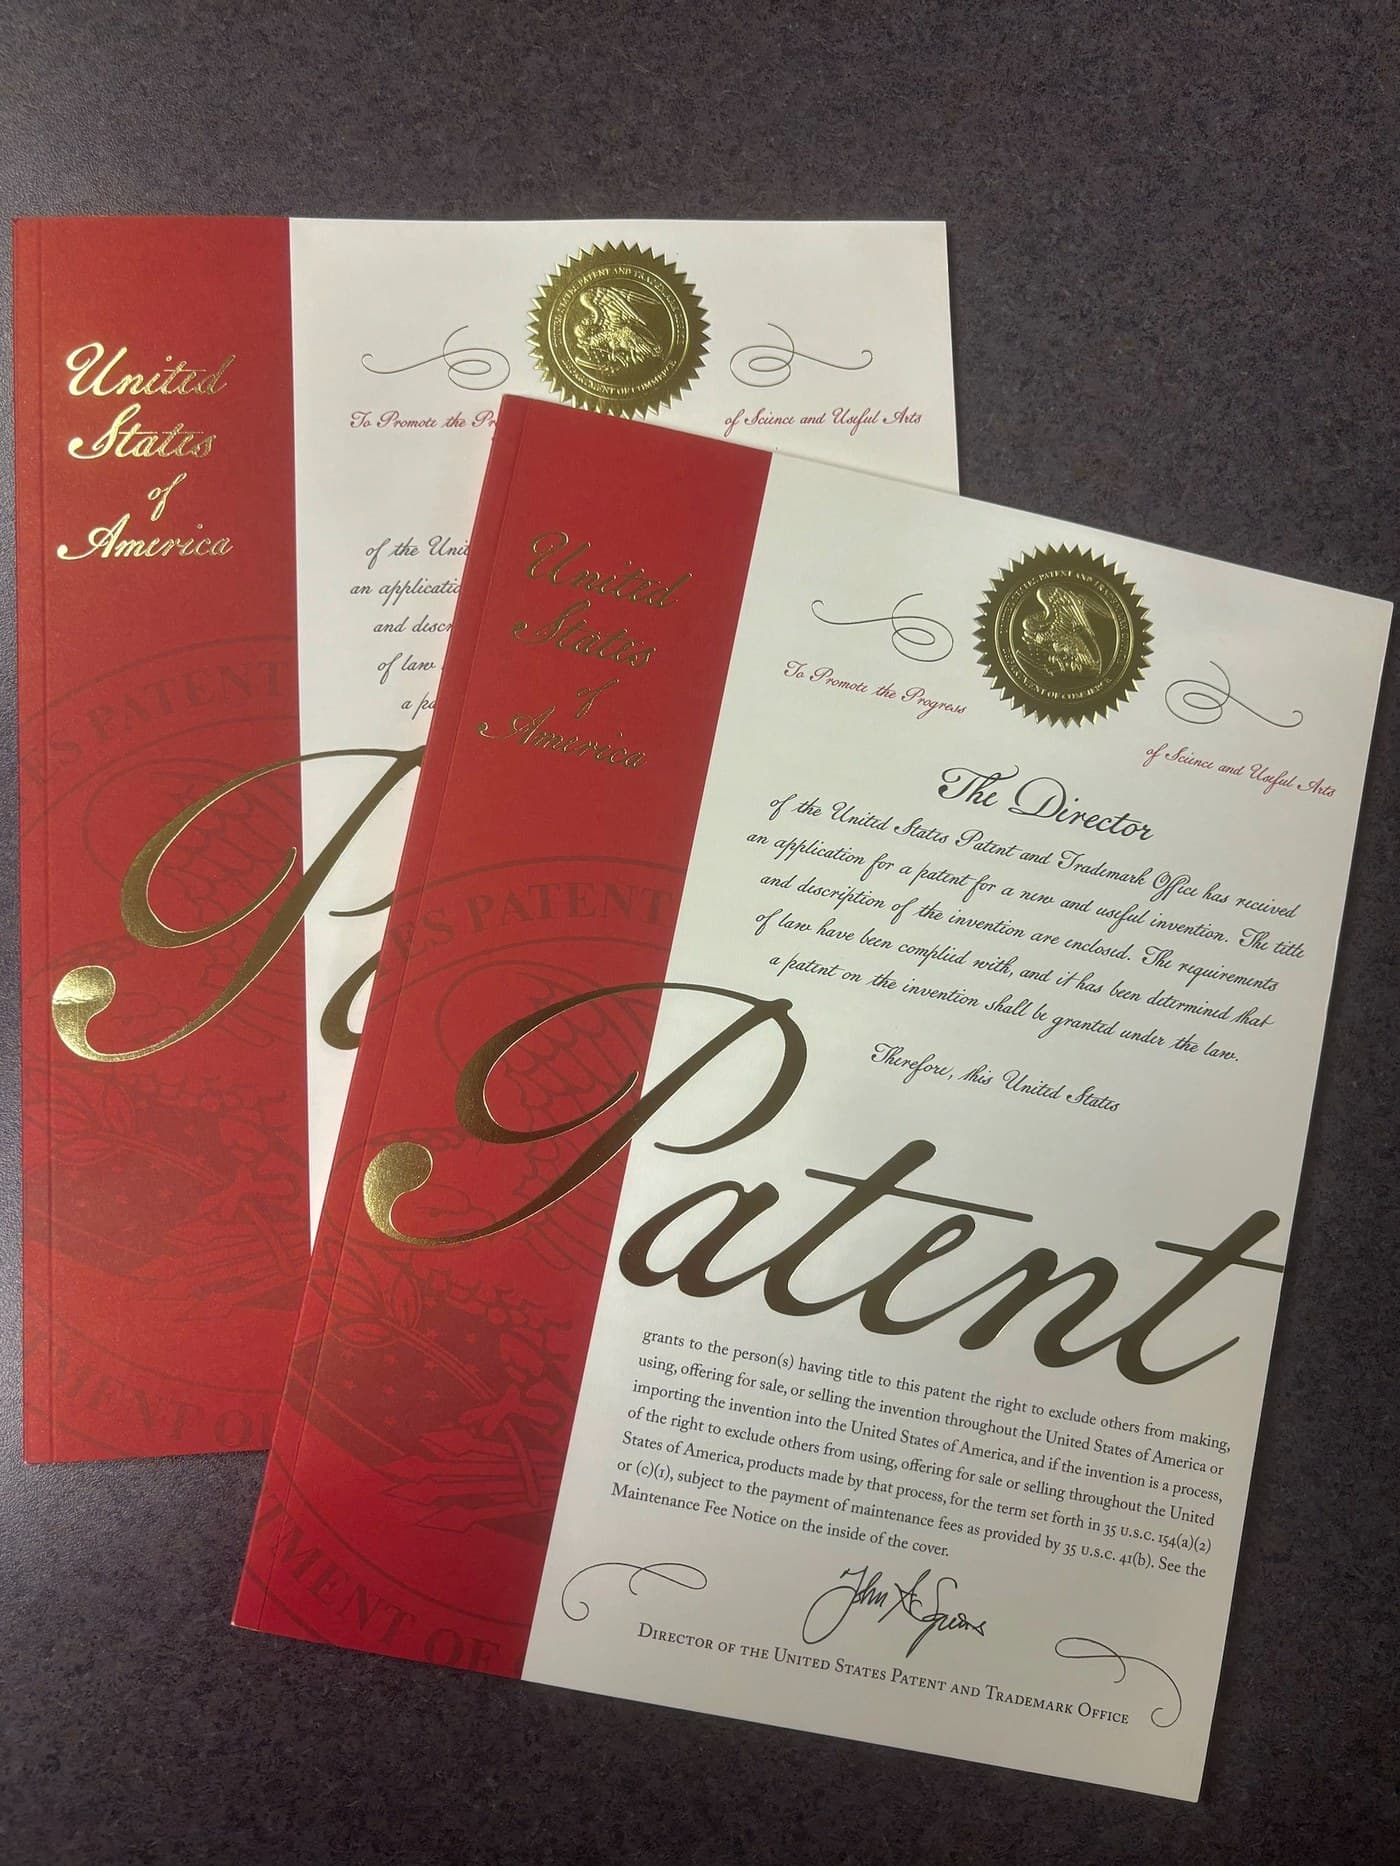 United
States
of
America
To Promote the Pr
of Science and Useful Arts
of the Uni
an applicatio
and descr
of law
a pa
PATENT AND TRADEMARK
DEPARTMENT OF COMMERCE
ES PATENT
P
TMENT O
United
States
of
America
To Promote the Progress
of Science and Useful Arts
PATENT AND TRADEMARK
DEPARTMENT OF COMMERCE
The Director
of the United States Patent and Trademark Office has received
an application for a patent for a new and useful invention. The title
and description of the invention are enclosed. The requirements
of law have been complied with, and it has been determined that
a patent on the invention shall be granted under the law.
Therefore, this United States
TES PATENT
Patent
grants to the person(s) having title to this patent the right to exclude others from making,
using, offering for sale, or selling the invention throughout the United States of America or
importing the invention into the United States of America, and if the invention is a process,
of the right to exclude others from using, offering for sale or selling throughout the United
States of America, products made by that process, for the term set forth in 35 U.S.C. 154(a)(2)
or (c)(1), subject to the payment of maintenance fees as provided by 35 U.S.C. 41(b). See the
Maintenance Fee Notice on the inside of the cover.
TMENT OF
John A Squires
Director of the United States Patent and Trademark Office